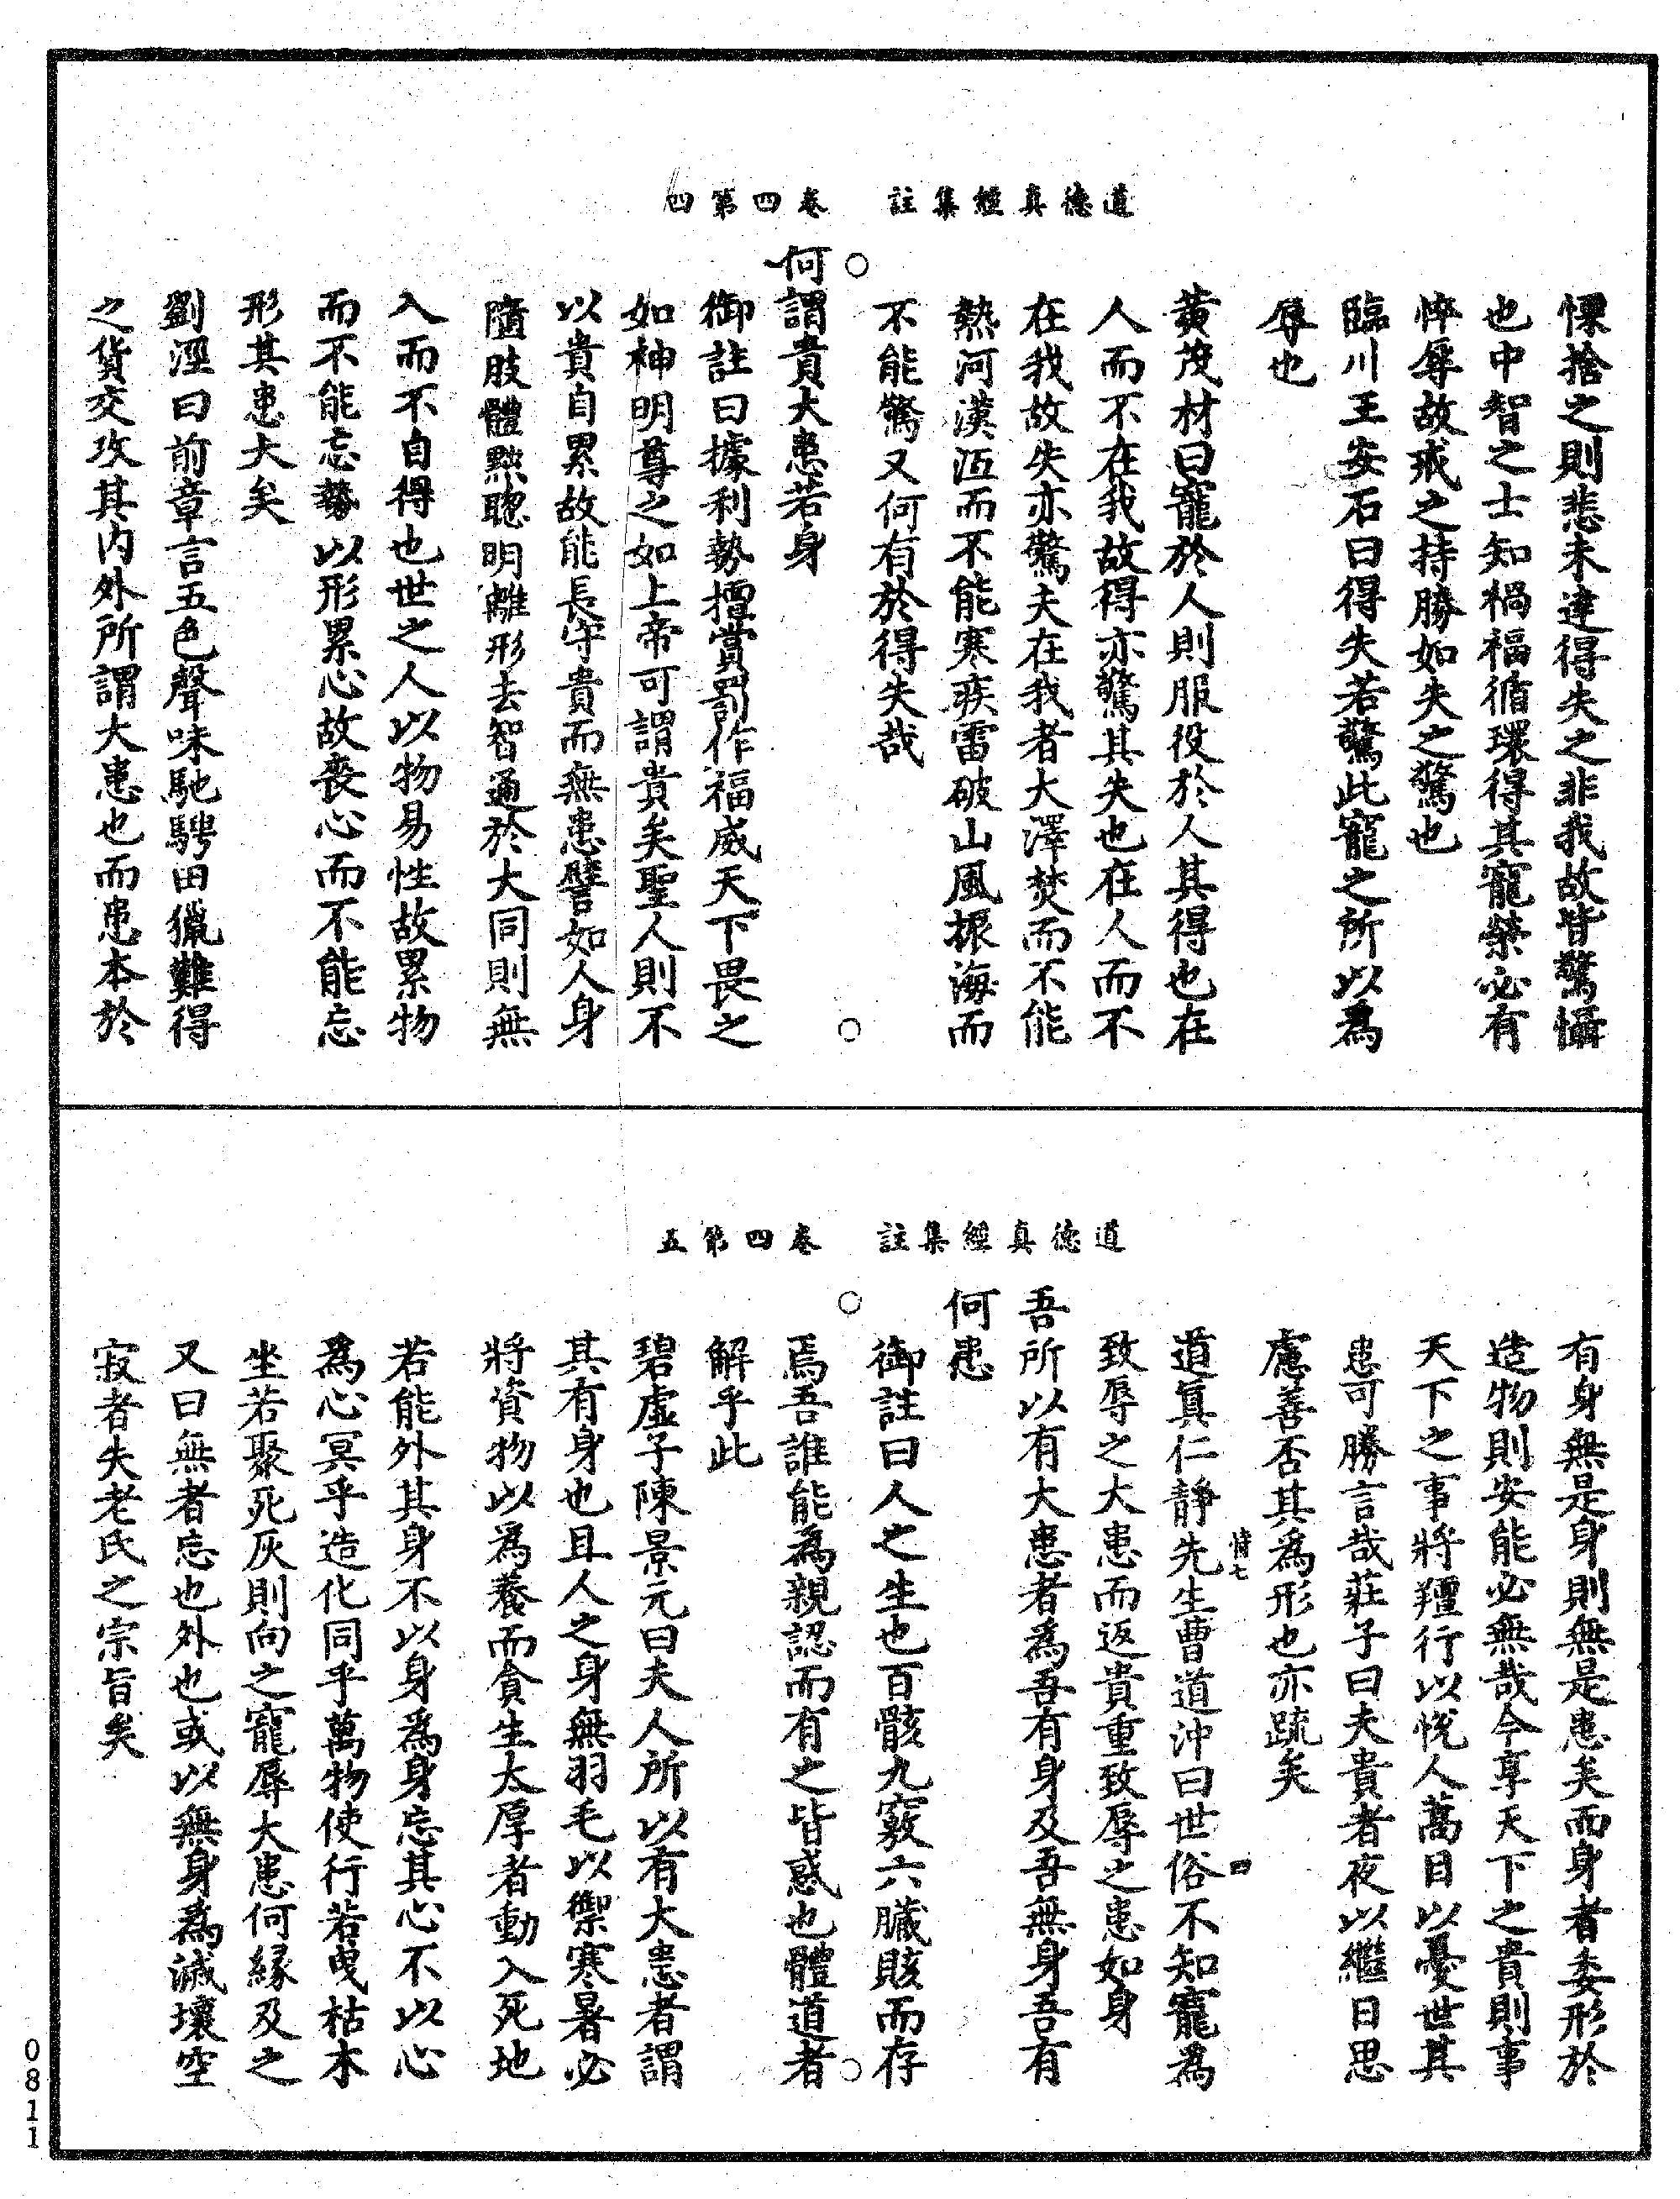 道德真經集註　卷四第四
慄捨之則悲未達得失之非我故皆驚懾
也中智之士知禍福循環得其寵榮必有
悴辱故戒之持勝如失之驚也
臨川王安石曰得失若驚此寵之所以為
辱也
黃茂材曰寵於人則服役於人其得也在
人而不在我故得亦驚其失也在人而不
在我故失亦驚夫在我者大澤焚而不能
熱河漢沍而不能寒疾雷破山風振海而
不能驚又何有於得失哉
○
何謂貴大患若身
御註曰據利勢擅賞罰作福威天下畏之
如神明尊之如上帝可謂貴矣聖人則不
以貴自累故能長守貴而無患譬如人身
隳肢體黜聰明離形去智通於大同則無
入而不自得也世之人以物易性故累物
而不能忘勢以形累心故喪心而不能忘
形其患大矣
劉涇曰前章言五色聲味馳騁田獵難得
之貨交攻其內外所謂大患也而患本於
道德真經集註　卷四第五
有身無是身則無是患矣而身者委形於
造物則安能必無哉今享天下之貴則事
天下之事將羶行以悅人蒿目以憂世其
患可勝言哉莊子曰夫貴者夜以繼日思
慮善否其為形也亦疏矣
道真仁靜先生曹道沖曰世俗不知寵為
致辱之大患而返貴重致辱之患如身
吾所以有大患者為吾有身及吾無身吾有
何患
御註曰人之生也百骸九竅六臟賅而存
焉吾誰能為親認而有之皆惑也體道者
解乎此
碧虛子陳景元曰夫人所以有大患者謂
其有身也且人之身無羽毛以禦寒暑必
將資物以為養而貪生太厚者動入死地
若能外其身不以身為身忘其心不以心
為心冥乎造化同乎萬物使行若曳枯木
坐若聚死灰則向之寵辱大患何緣及之
又曰無者忘也外也或以無身為滅壞空
寂者失老氏之宗旨矣
0811